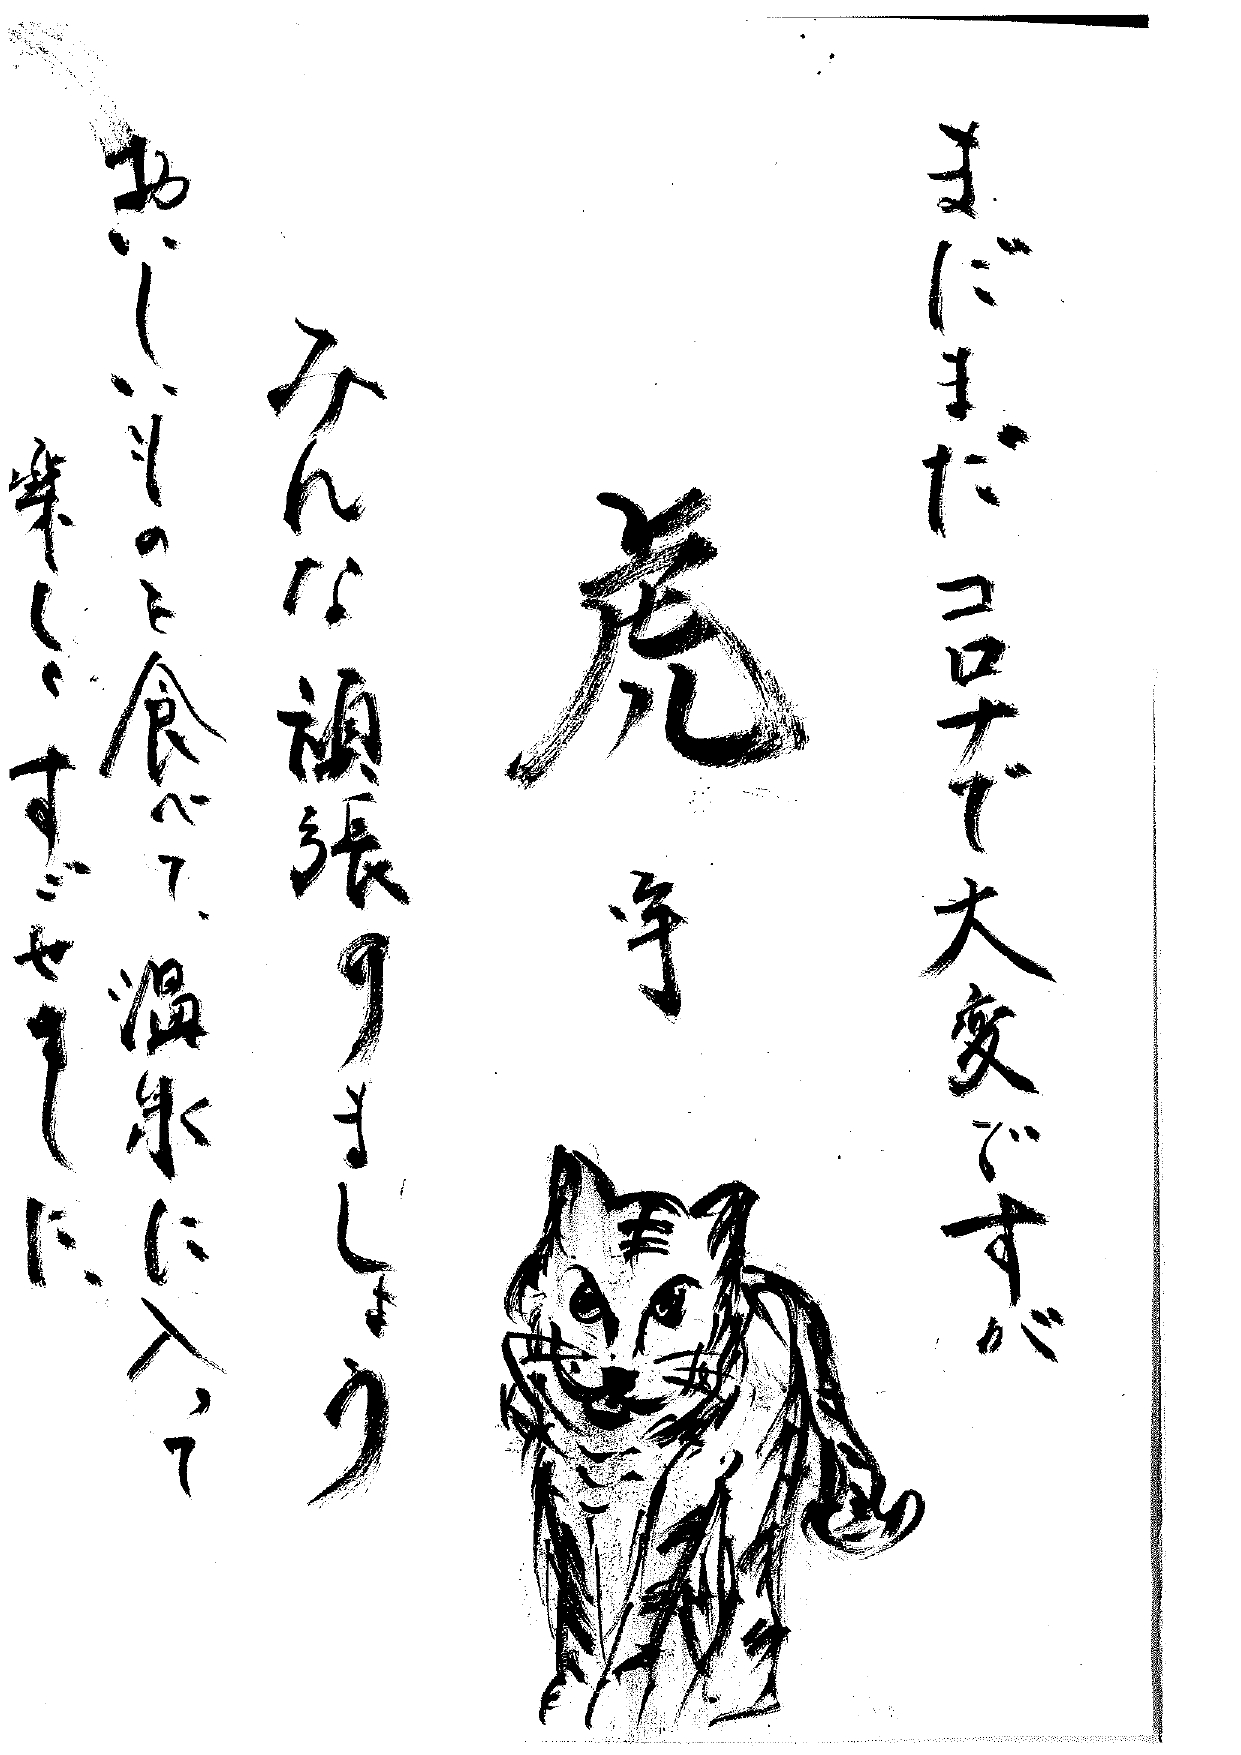 まだまだコロナで大変ですが
虎
みんな頑張りましょう
おいしいものを食べて、温泉に入って
楽しくすごせました、